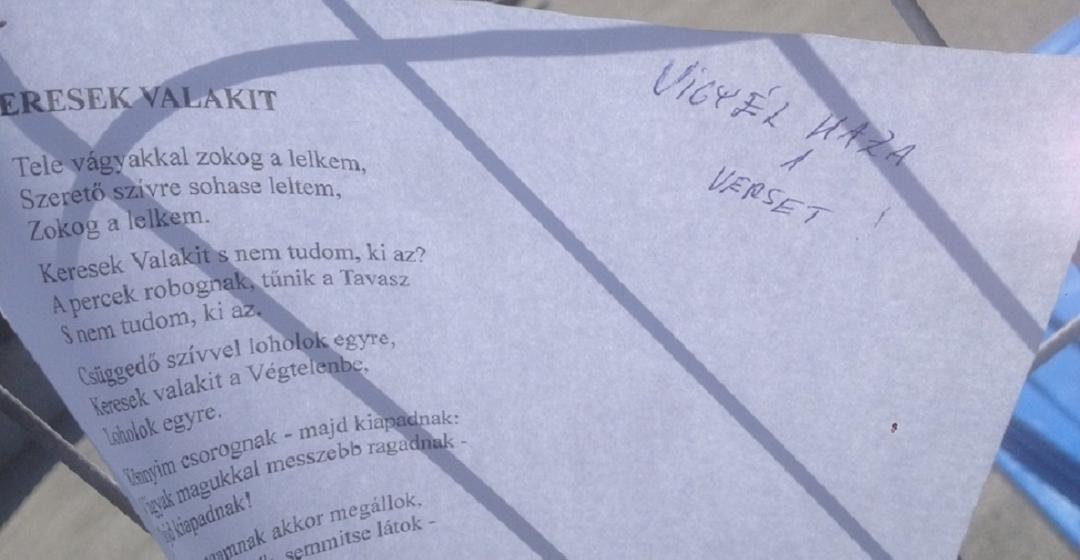 ERESEK VALAKIT
Tele vágyakkal zokog a lelkem,
Szerető szívre sohase leltem,
Zokog a lelkem.
Keresek Valakit s nem tudom, ki az?
A percek robognak, tűnik a Tavasz
S nem tudom, ki az.
Csüggedő szívvel loholok egyre,
Keresek valakit a Végtelenbe,
Loholok egyre.
Könnyim csorognak - majd kiapadnak:
magukkal messzebb ragadnak -
kiapadnak!
akkor megállok,
semmitse látok -
VIGYÉL HAZA
1
VERSET !